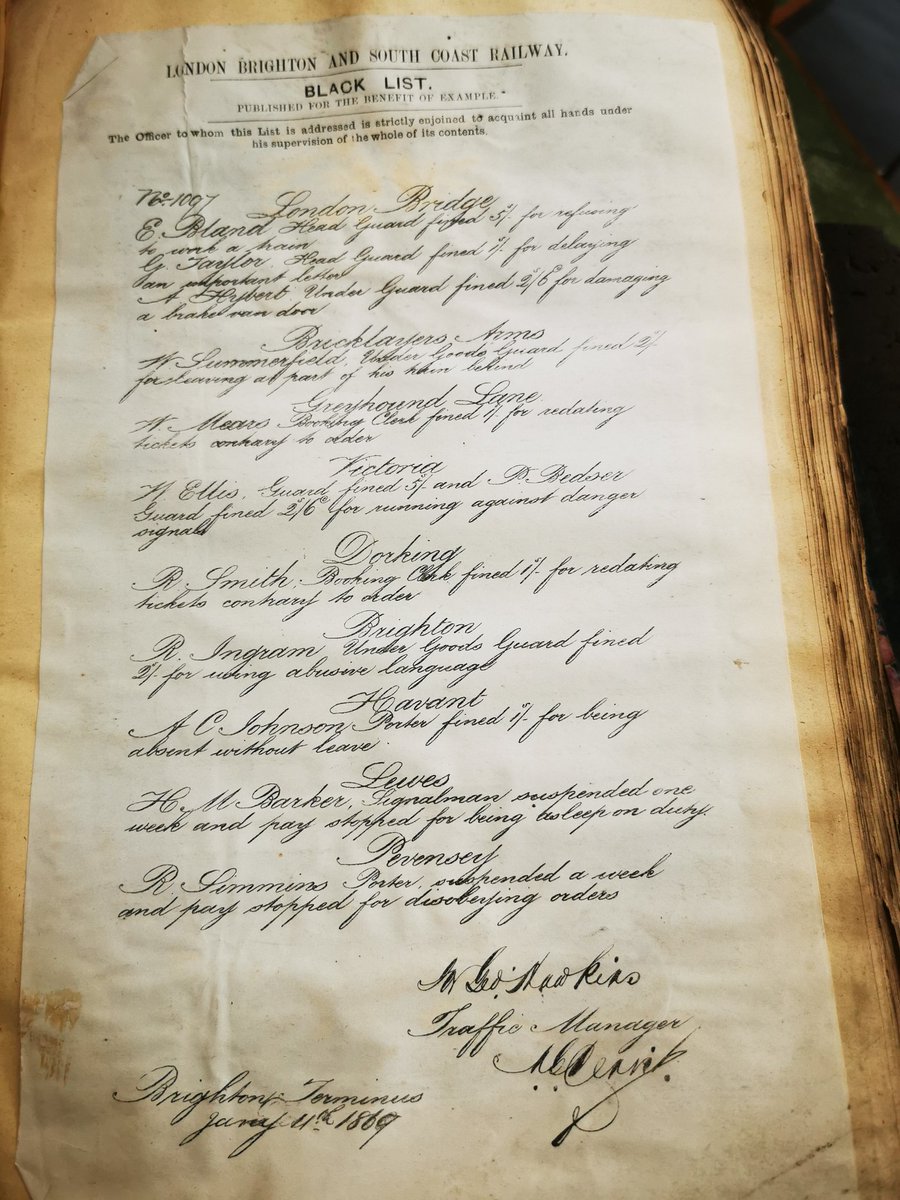 LONDON BRIGHTON AND SOUTH COAST RAILWAY.
BLACK LIST.
PUBLISHED FOR THE BENEFIT OF EXAMPLE.
The Officer to whom this List is addressed is strictly enjoined to acquaint all hands under
his supervision of the whole of its contents.
No. 1097
London Bridge
E. Bland Head Guard fined 5/- for refusing
to work a train
G. Taylor, Head Guard fined 1/- for delaying
an important letter
A. Under Guard fined 2/6 for damaging
a brake van door
Bricklayers Arms
W. Summerfield, Under Goods Guard fined 2/-
for leaving a part of his train behind
Greyhound Lane
W. Mears Booking Clerk fined 1/- for redating
tickets contrary to order
Victoria
W. Ellis, Guard fined 5/- and P. Bedser
Guard fined 2/6 for running against danger
signals
Dorking
R. Smith Booking Clerk fined 1/- for redating
tickets contrary to order
Brighton
R. Ingram Under Goods Guard fined
2/- for using abusive language
Havant
A C Johnson Porter fined 1/- for being
absent without leave
Lewes
H. M Barker, Signalman suspended one
week and pay stopped for being asleep on duty.
Pevensey
R. Simmins Porter, suspended a week
and pay stopped for disobeying orders
Geo Hawkins
Traffic Manager
Brighton Terminus
Jany 11th 1869